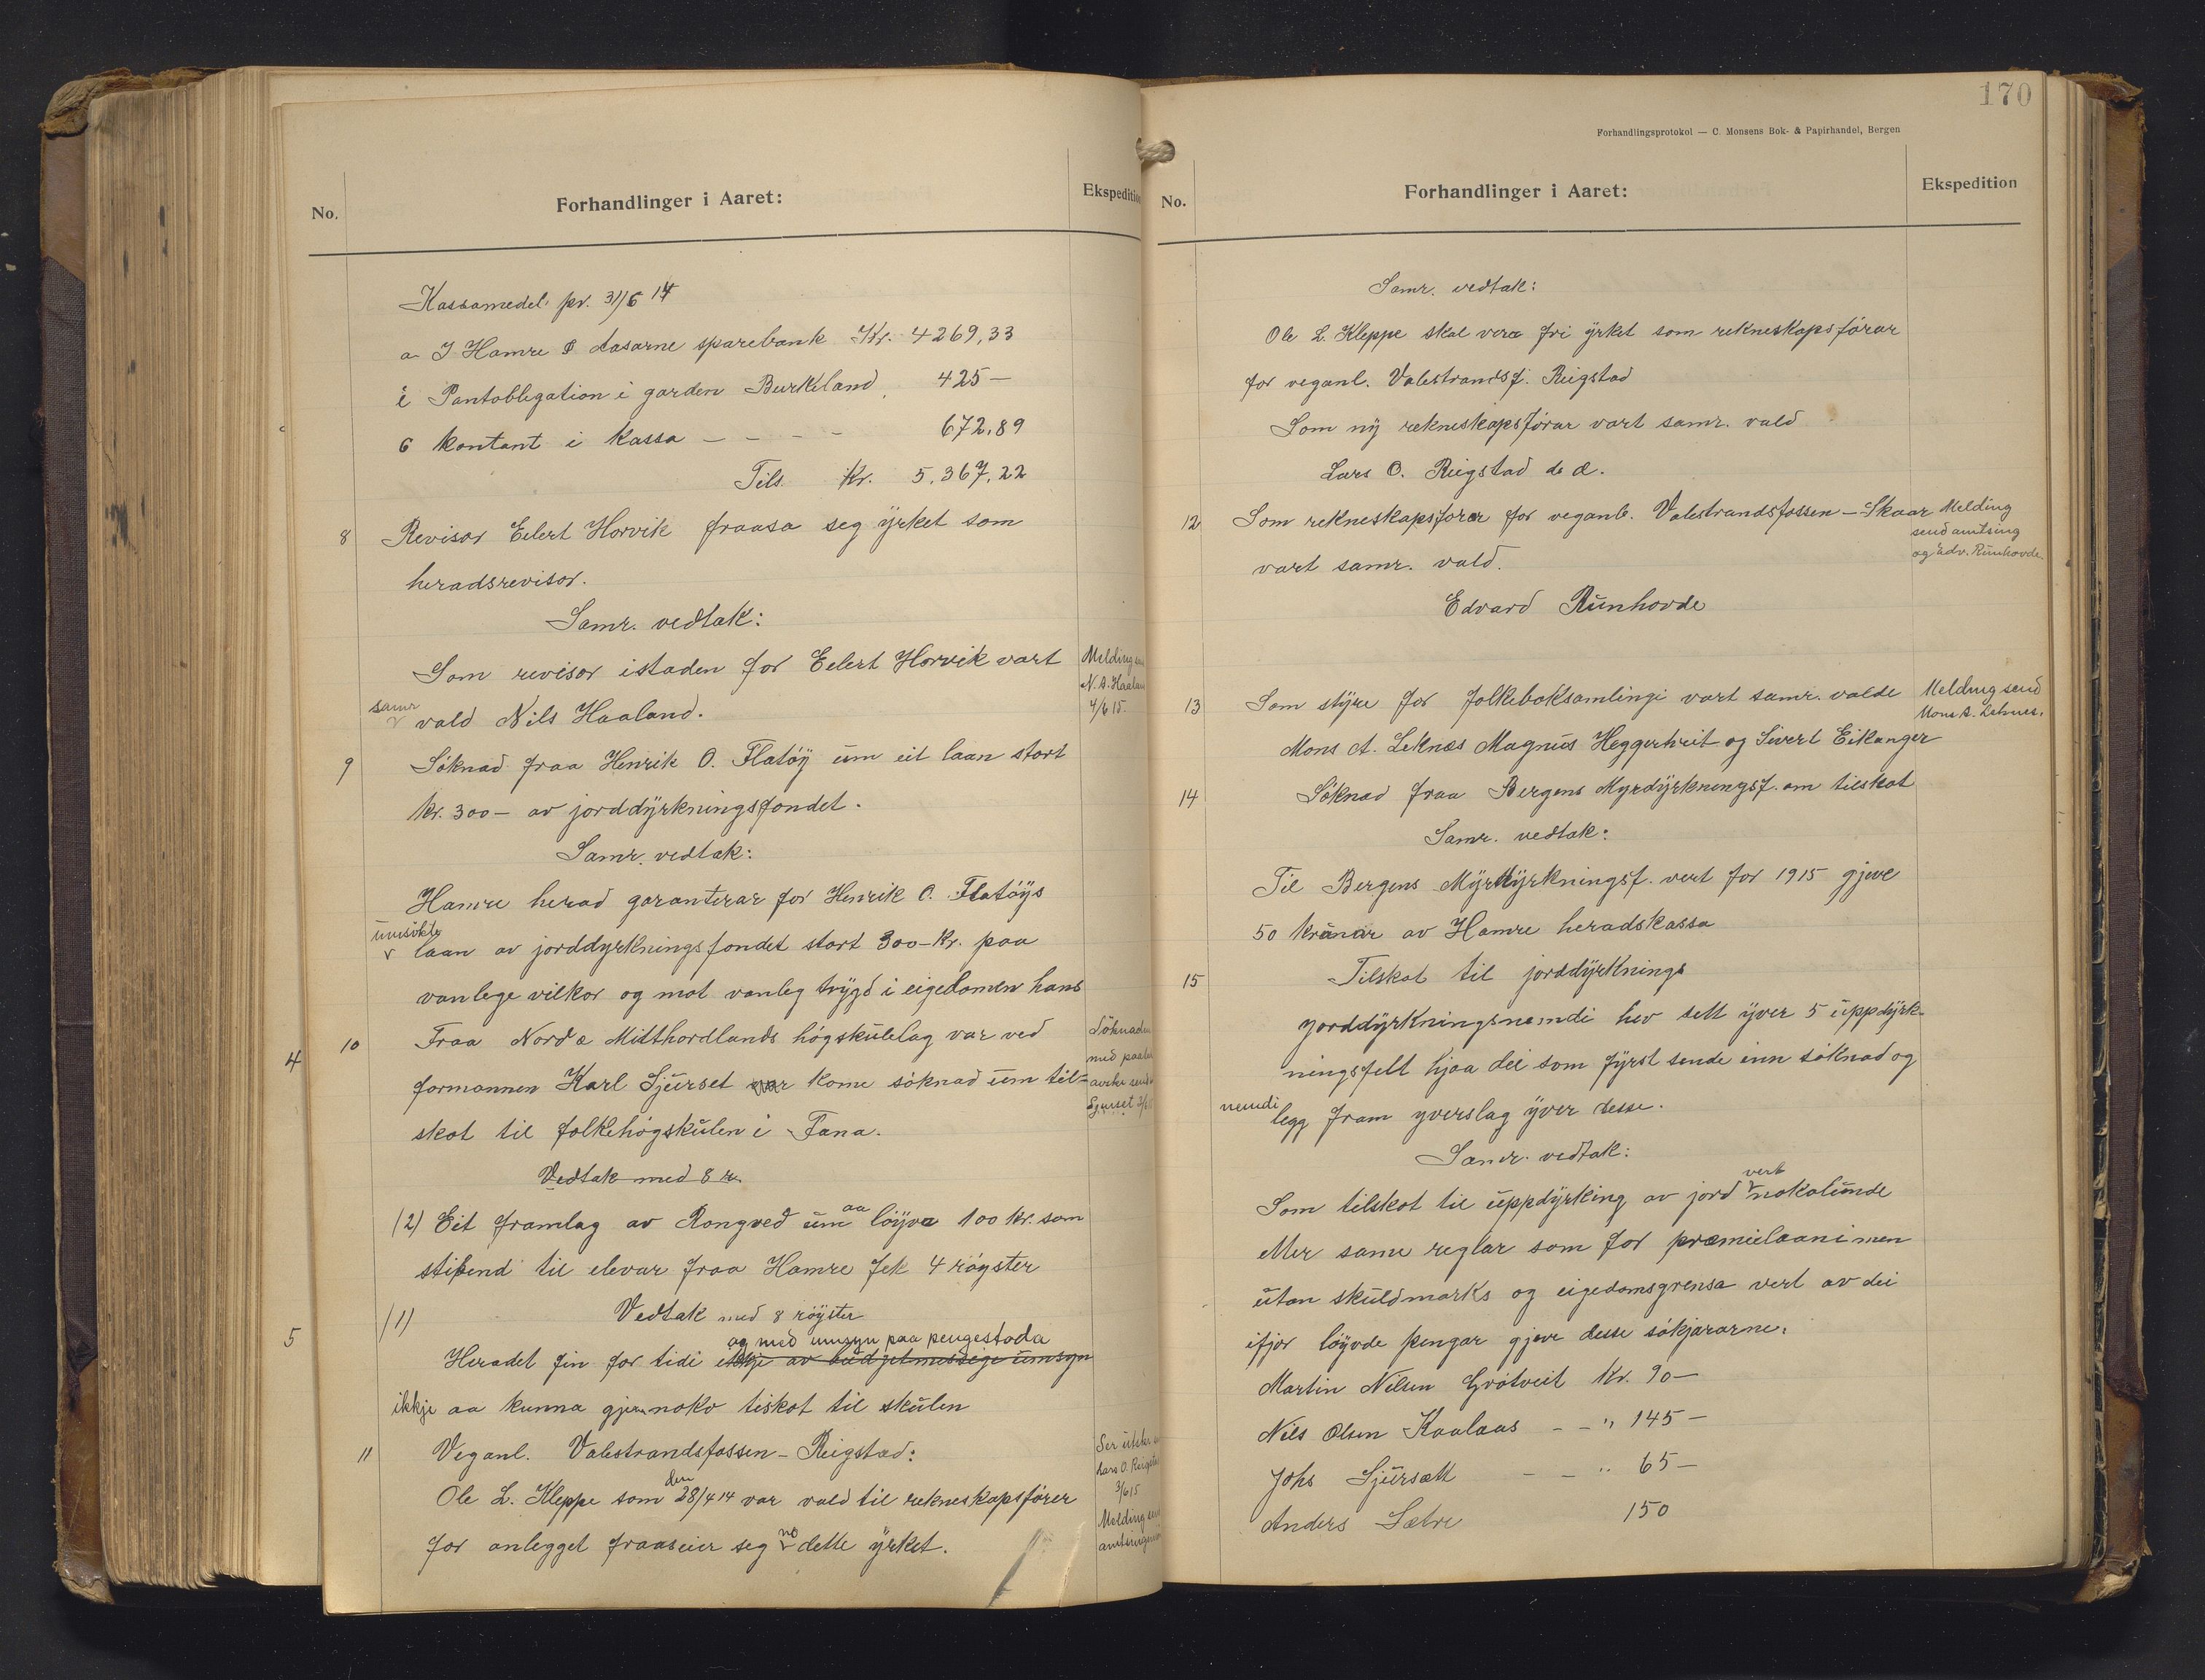 No.
Forhandlinger i Aaret:
Ekspedition
Kassamedel pr. 31/5 14
a I Hamre & Aasarne sparebank Kr. 4269,33
i Pantobligation i garden Burkeland 425 —
6 kontant i kassa — — — — 672,89
Tils. Kr. 5,367,22
8 Revisor Eilert Horvik fraasa seg yrket som
heradsrevisor.
Samr. vedtak:
Som revisor istaden for Eilert Horvik vart
samr vald Nils Haaland.
Melding
N. A. Haaland
4/6 15.
9 Söknad fraa Henrik O. Flatöy um eit laan stort
kr. 300 — av jorddyrkningsfondet.
Samr. vedtak:
Hamre herad garanterar for Henrik O. Flatöys
umsökte laan av jorddyrkningsfondet stort 300 — kr. paa
vanlege vilkor og mot vanleg trygd i eigedomen hans
4 10 Fraa Nord & Midthordlands högskulelag var ved
formannen Karl Sjurset var kome söknad um til-
skot til folkehögskulen i Fana.
Söknaden
med
Sjurset
Vedtak med 8 r.
(2) Eit framlag av Rongved um aa löyva 100 kr. som
stipend til elevar fraa Hamre fek 4 röyster
(1) Vedtak med 8 röyster
og med umsyn paa pengestoda
5 Heradet fin for tidi ikkje av budgetmessige umsyn
ikkje aa kunna gjeva noko tiskot til skulen
11 Veganl. Valestrandsfossen — Reigstad:
Ole L. Kleppe som den 28/4 14 var vald til rekneskapsförer
for anlegget fraaseier seg no dette yrket.
Ser utskr
Lars O. Reigstad
3/6 15
Melding send
amtsingeniør
170
Forhandlingsprotokol — C. Monsens Bok- & Papirhandel, Bergen
No.
Forhandlinger i Aaret:
Ekspedition
Samr. vedtak:
Ole L. Kleppe skal vera fri yrket som rekneskapsförar
for veganl. Valestrandsf. Reigstad
Som ny rekneskapsförar vart samr. vald
Lars O. Reigstad d. e.
12 Som rekneskapsförer for veganl. Valestrandsfossen — Skaar
vart samr. vald.
Edvard Runhovde
Melding
send amtsing
og Edv. Runhovde.
13 Som styre for folkeboksamlingi vart samr. valde
Mons A. Leknes Magnus Heggertveit og Sivert Eikanger
Melding send
Mons A. Leknes.
14 Söknad fraa Bergens Myrdyrkningsf. om tilskot
Samr. vedtak:
Til Bergens Myrdyrkningsf. vert for 1915 gjeve
50 kronar av Hamre heradskassa
15 Tilskot til jorddyrknings
Jorddyrkningsnemdi hev sett yver 5 uppdyrk-
ningsfelt hjaa dei som fyrst sende inn söknad og
nemdi legg fram yverslag yver desse.
Samr. vedtak:
Som tilskot til uppdyrking av jord vert nokolunde
etter same reglar som for præmielaani men
utan skuldmarks og eigedomsgrensa vert av dei
ifjor löyvde pengar gjeve desse sökjararne:
Martin Nilsen Grötveit Kr. 90 —
Nils Olsen Kaalaas — — " 145 —
Johs Sjursætt — — " 65 —
Anders Sætre 150